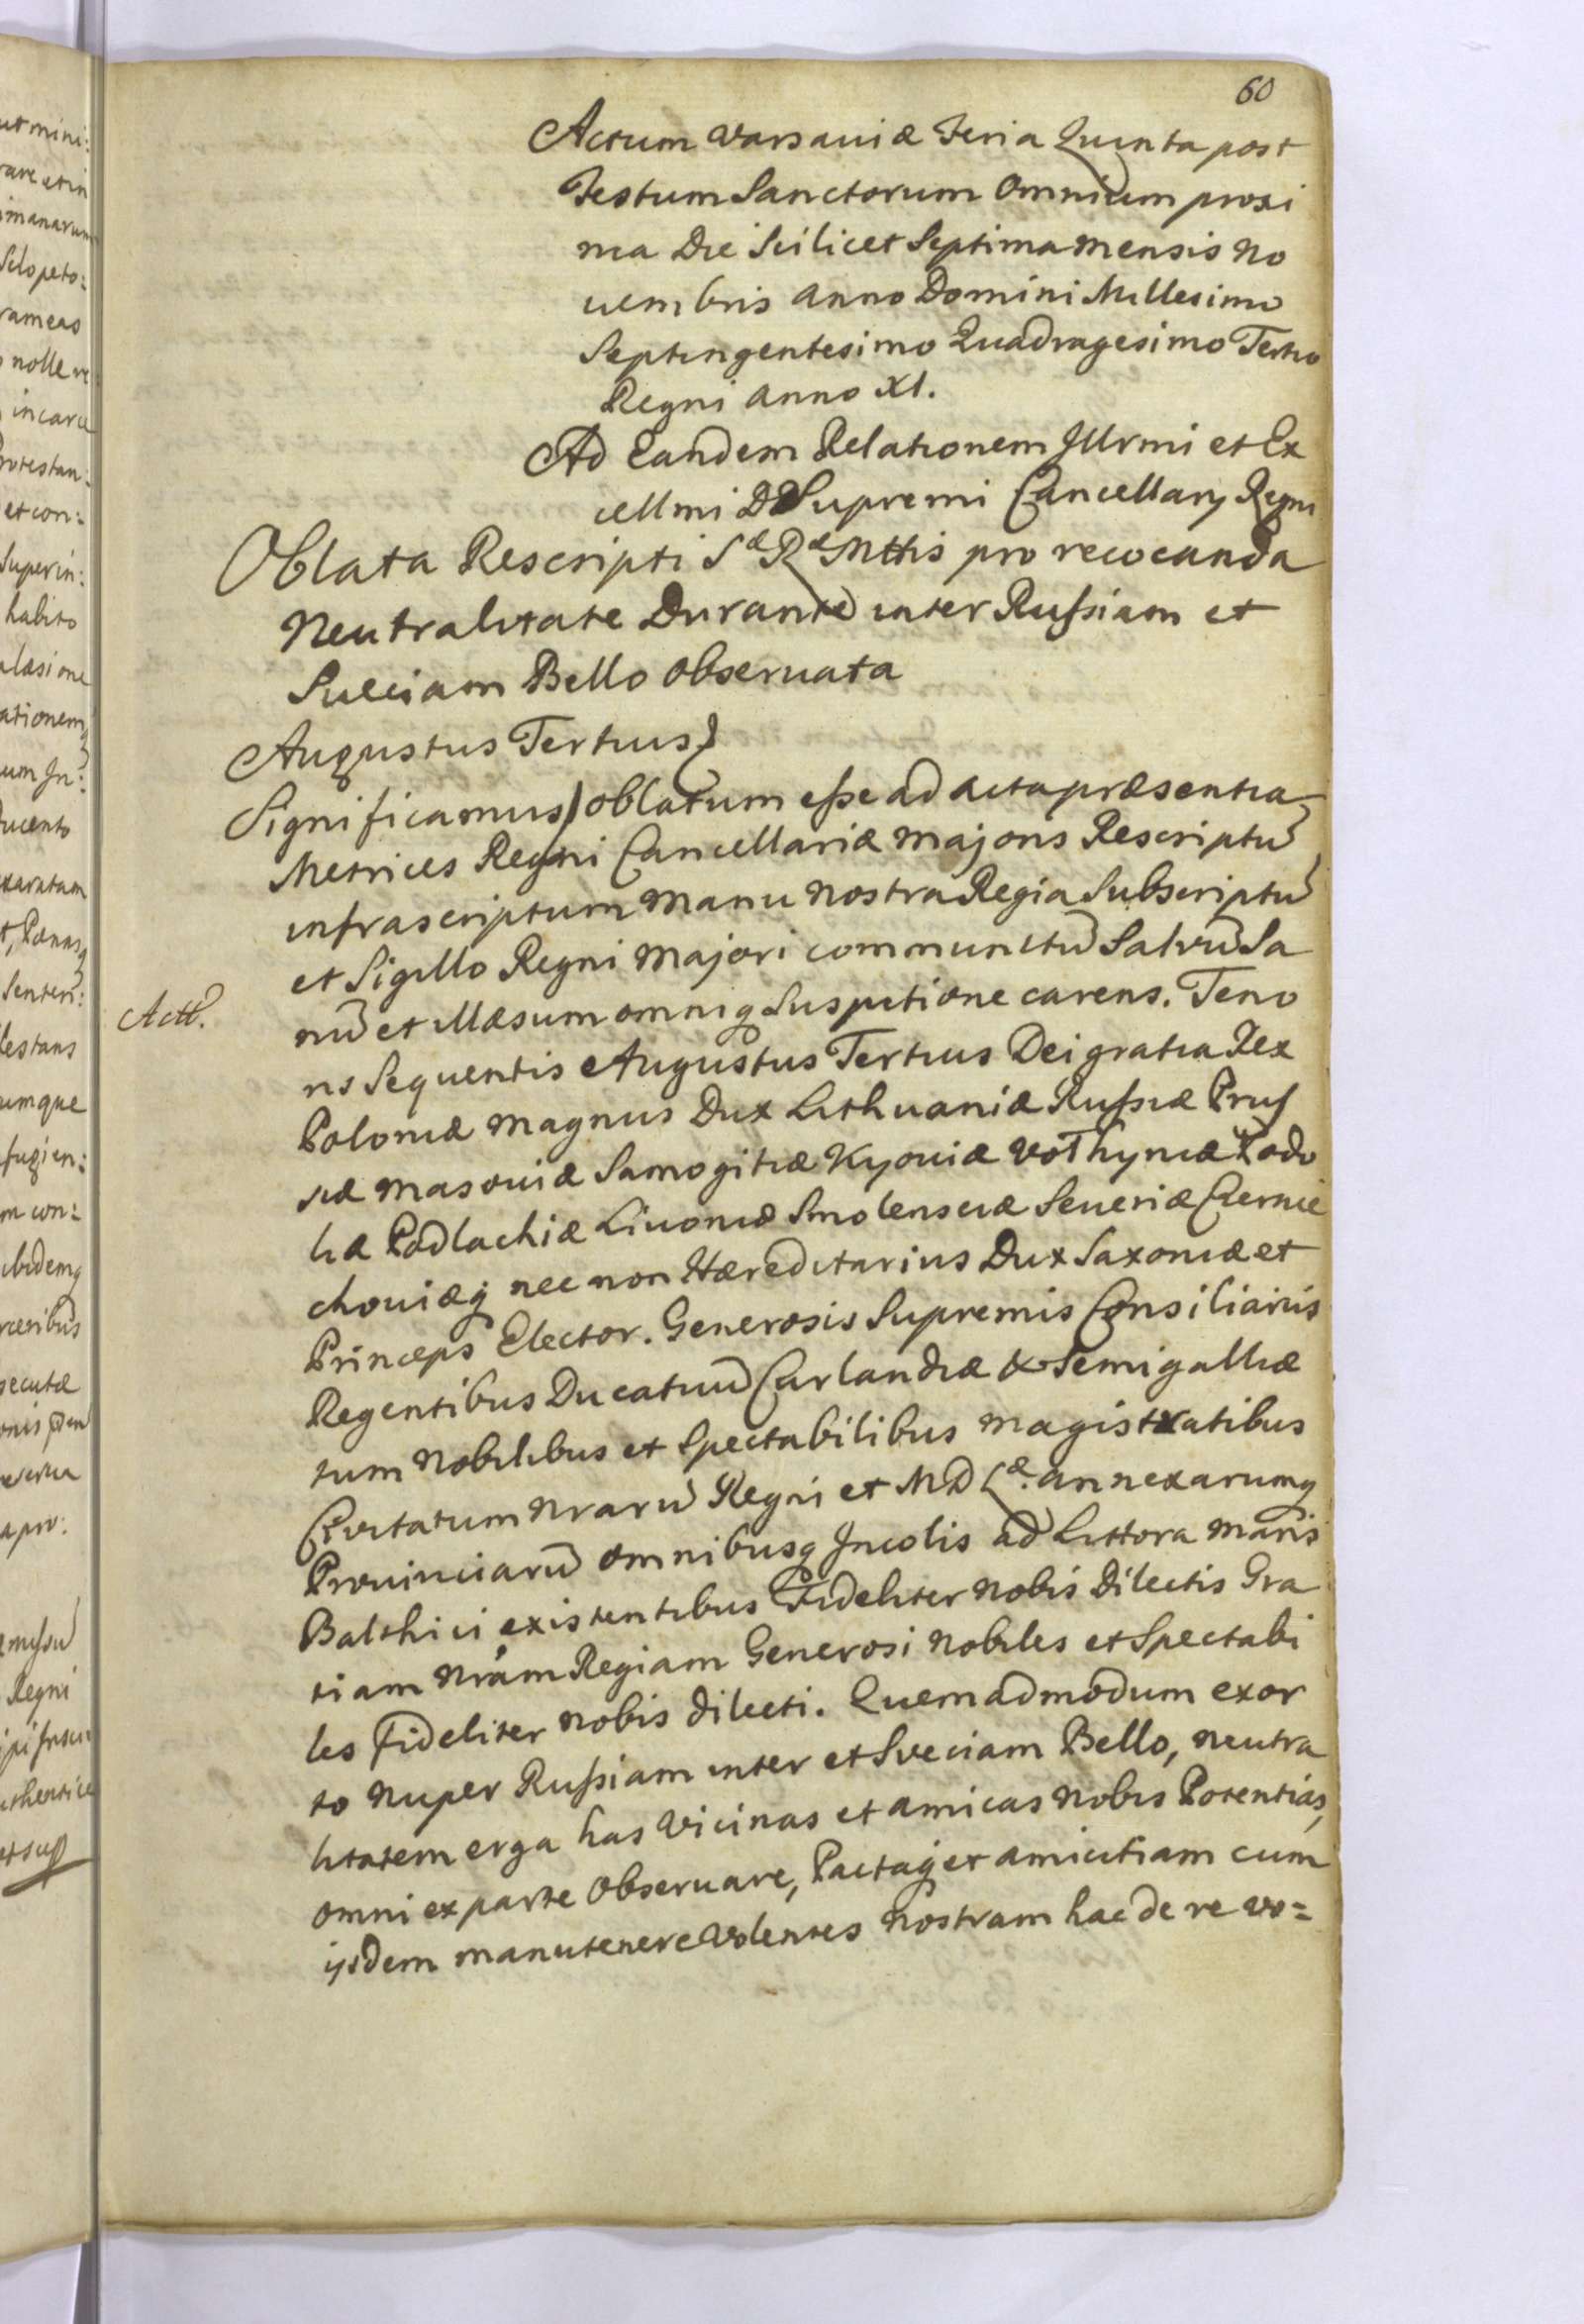 60
Actum Varsaviæ Feria Quinta post
Festum Sanctorum Omnium proxi
ma Die Scilicet Septima mensis No
uembris Anno Domini Millesimo
Septingentesimo Quadragesimo Tertio
Regni anno XI.
Ad Eandem Relationem Jllrmi et Ex
cellmi D Supremi Cancellarij Regni
Oblata Rescripti Sæ Ræ Mttis pro revocanda
Neutralitate Durante inter Rußiam et
Sueciam Bello Obseruata
Augustus Tertius
Significamus oblatum eße ad acta præsentia
Metrices Regni Cancellariæ Majoris Rescriptū
infrascriptum Manu Nostra Regia Subscriptū
et Sigillo Regni Majori communitū Salvū Sa
nū et illæsum omniq Suspitione carens. Teno
ris Sequentis Augustus Tertius Dei gratia Rex
Actt.
Poloniæ Magnus Dux Lithuaniæ Rußiæ Pruſ
siæ Masouiæ Samogitiæ Kyouiæ Volhyniæ Podo
liæ Podlachiæ Liuoniæ Smolensciæ Seueriæ Czernie
chouiæq nec non Hæreditarius Dux Saxoniæ et
Princeps Elector. Generosis Supremis Consiliariis
Regentibus Ducatuū Curlandiæ & Semigalliæ
tum Nobilibus et Spectabilibus Magistratibus
Civitatum Nrarū Regni et M D Læ. annexarumq
Prouinciarū omnibusq Jncolis ad Littora Maris
Balthici existentibus Fideliter Nobis Dilectis Gra
tiam Nram Regiam Generosi Nobiles et Spectabi
les Fideliter nobis dilecti. Quemadmodum exor
to nuper Rußiam inter et Sueciam Bello, neutra
litatem erga has Vicinas et amicas Nobis Potentias,
omni ex parte Obseruare, Pactaq et amicitiam cum
ijsdem manutenere Volentes Nostram hac de re vo=